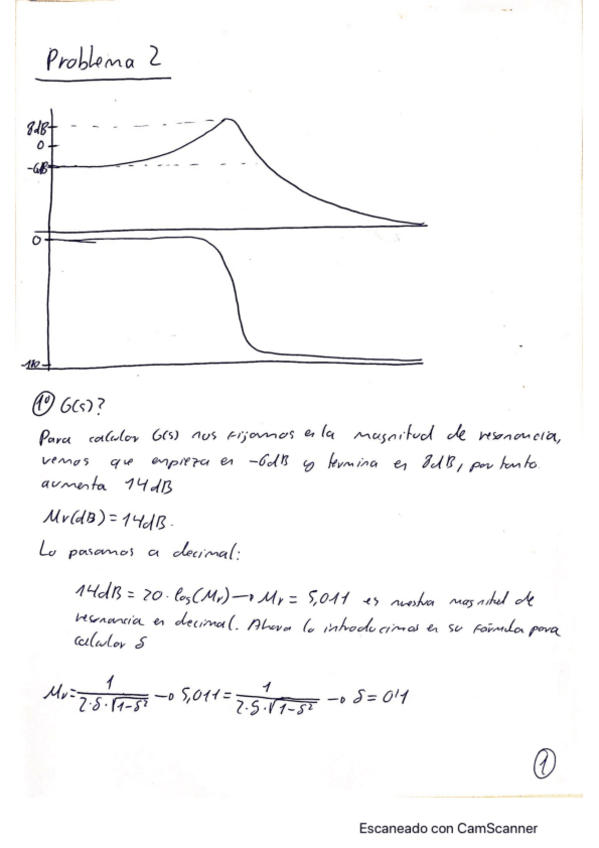 Problema 2
8dB
0
-6dB
0
-180
1º G(s)?
Para calcular G(s) nos fijamos en la magnitud de resonancia,
vemos que empieza en -6dB y termina en 8dB, por tanto
aumenta 14dB
Mr(dB)=14dB.
Lo pasamos a decimal:
14dB = 20·log(Mr)→Mr = 5,011 es nuestra magnitud de
resonancia en decimal. Ahora lo introducimos en su fórmula para
calcular δ
Mr=1/(2·δ·√(1-δ²)) → 5,011=1/(2·δ·√(1-δ²)) → δ=0'1
1
Escaneado con CamScanner